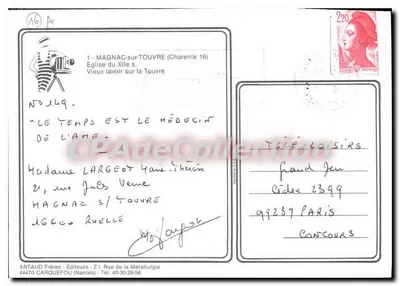 16 A
1 - MAGNAC-sur-TOUVRE (Charente 16)
Eglise du XIIe s.
Vieux lavoir sur la Touvre
2,20
N° 149.
"LE TEMPS EST LE MÉDECIN
DE L'AME.
CPADeCollection
Madame LARGEOT Marie-Thérèse
21, rue Jules Verne
MAGNAC S/ TOUVRE
16600 RUELLE
TÉLÉ-LOISIRS
Grand Jeu
Cédex 2399
99237 PARIS
CONCOURS
ARTAUD Frères - Editeurs - Z.I. Rue de la Métallurgie
44470 CARQUEFOU (Nantes) - Tél. 40-30-26-56